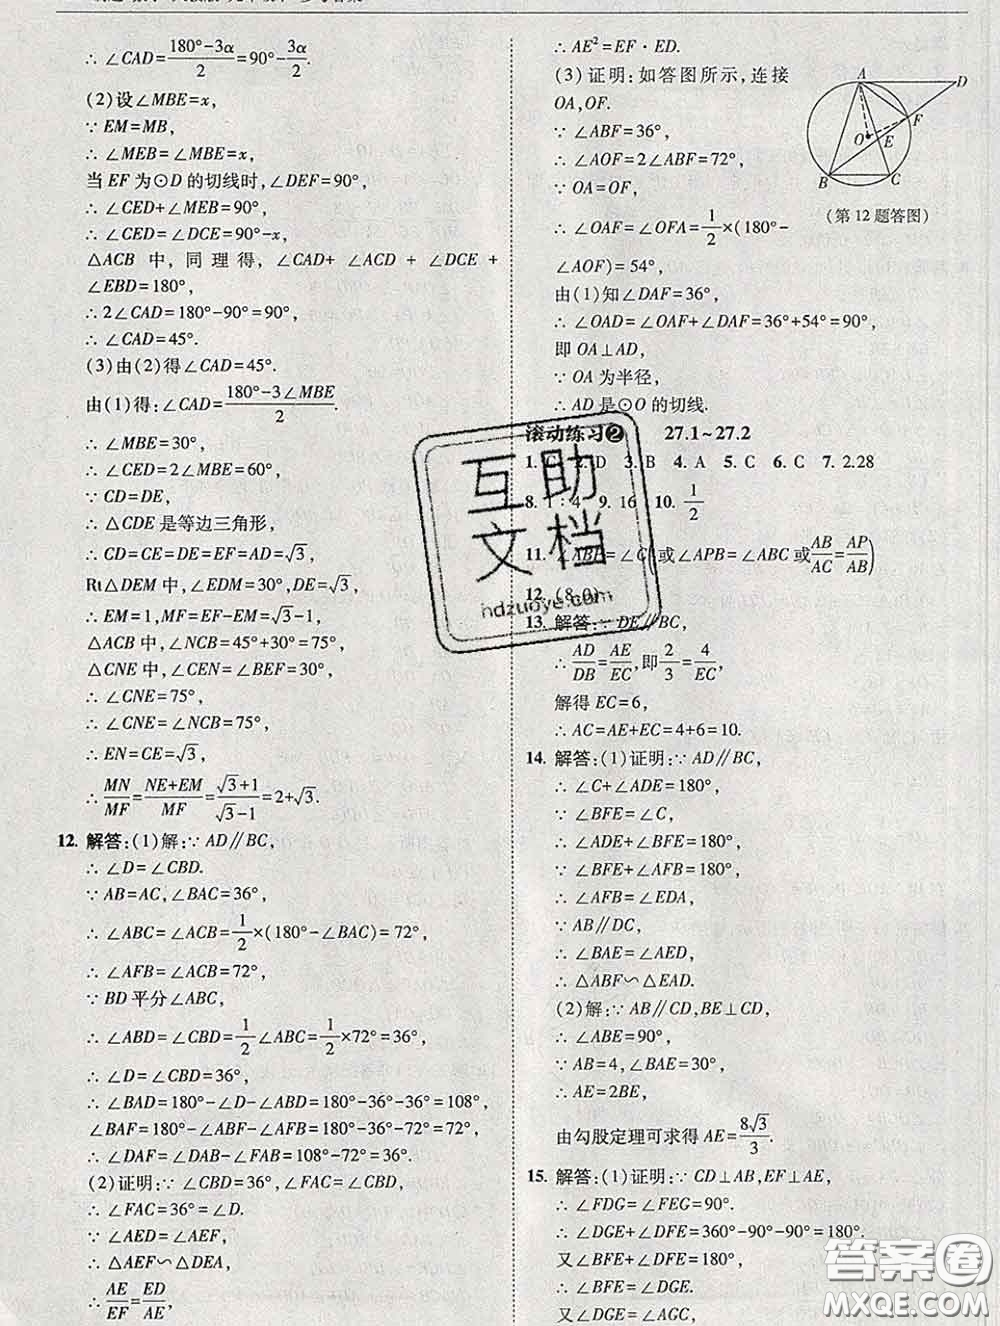 ∴ ∠CAD=(180°-3α)/2=90°-3α/2.
(2)设∠MBE=x,
∵ EM=MB,
∴ ∠MEB=∠MBE=x,
当 EF 为⊙D 的切线时,∠DEF=90°,
∴ ∠CED+∠MEB=90°,
∴ ∠CED=∠DCE=90°-x,
△ACB 中, 同理得, ∠CAD+ ∠ACD + ∠DCE +
∠EBD=180°,
∴ 2∠CAD=180°-90°=90°,
∴ ∠CAD=45°.
(3)由(2)得∠CAD=45°.
由(1)得:∠CAD=(180°-3∠MBE)/2.
∴ ∠MBE=30°,
∴ ∠CED=2∠MBE=60°,
∵ CD=DE,
∴ △CDE 是等边三角形,
∴ CD=CE=DE=EF=AD=√3,
Rt△DEM 中,∠EDM=30°,DE=√3,
∴ EM=1,MF=EF-EM=√3-1,
△ACB 中,∠NCB=45°+30°=75°,
△CNE 中,∠CEN=∠BEF=30°,
∴ ∠CNE=75°,
∴ ∠CNE=∠NCB=75°,
∴ EN=CE=√3,
∴ MN/MF=(NE+EM)/MF=(√3+1)/(√3-1)=2+√3.
12. 解答:(1)解:∵ AD∥BC,
∴ ∠D=∠CBD.
∵ AB=AC,∠BAC=36°,
∴ ∠ABC=∠ACB=1/2×(180°-∠BAC)=72°,
∴ ∠AFB=∠ACB=72°,
∵ BD 平分∠ABC,
∴ ∠ABD=∠CBD=1/2∠ABC=1/2×72°=36°,
∴ ∠D=∠CBD=36°,
∴ ∠BAD=180°-∠D-∠ABD=180°-36°-36°=108°,
∠BAF=180°-∠ABF-∠AFB=180°-36°-72°=72°,
∴ ∠DAF=∠DAB-∠FAB=108°-72°=36°.
(2)证明:∵ ∠CBD=36°,∠FAC=∠CBD,
∴ ∠FAC=36°=∠D.
∵ ∠AED=∠AEF,
∴ △AEF∽△DEA,
∴ AE/EF=ED/AE,
∴ AE²=EF·ED.
(3)证明:如答图所示,连接
OA,OF.
∵ ∠ABF=36°,
∴ ∠AOF=2∠ABF=72°,
∵ OA=OF,
∴ ∠OAF=∠OFA=1/2×(180°-
∠AOF)=54°,
由(1)知∠DAF=36°,
∴ ∠OAD=∠OAF+∠DAF=36°+54°=90°,
即 OA⊥AD,
∵ OA 为半径,
∴ AD 是⊙O 的切线.
A
D
F
O
E
B
C
(第12题答图)
滚动练习❷ 27.1~27.2
1. C 2. D 3. B 4. A 5. C 6. C 7. 2.28
8. 1:4 9. 16 10. 1/2
11. ∠ABP=∠C(或∠APB=∠ABC 或 AB/AC=AP/AB)
12. (8,0)
13. 解答:∵ DE∥BC,
∴ AD/DB=AE/EC,即2/3=4/EC,
解得 EC=6,
∴ AC=AE+EC=4+6=10.
14. 解答:(1)证明:∵ AD∥BC,
∴ ∠C+∠ADE=180°,
∵ ∠BFE=∠C,
∴ ∠ADE+∠BFE=180°,
∵ ∠BFE+∠AFB=180°,
∴ ∠AFB=∠EDA,
∵ AB∥DC,
∴ ∠BAE=∠AED,
∴ △ABF∽△EAD.
(2)解:∵ AB∥CD,BE⊥CD,
∴ ∠ABE=90°,
∵ AB=4,∠BAE=30°,
∴ AE=2BE,
由勾股定理可求得 AE=8√3/3.
15. 解答:(1)证明:∵ CD⊥AB,EF⊥AE,
∴ ∠FDG=∠FEG=90°.
∴ ∠DGE+∠DFE=360°-90°-90°=180°.
又∠BFE+∠DFE=180°,
∴ ∠BFE=∠DGE.
又∠DGE=∠AGC,
互助
文档
hdzuoye.com
答案圈
MXQE.COM